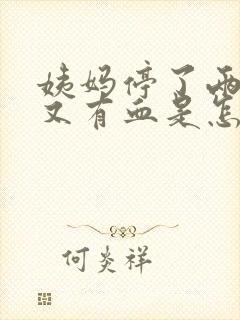 姨妈停了两
又有血是怎
何炎祥